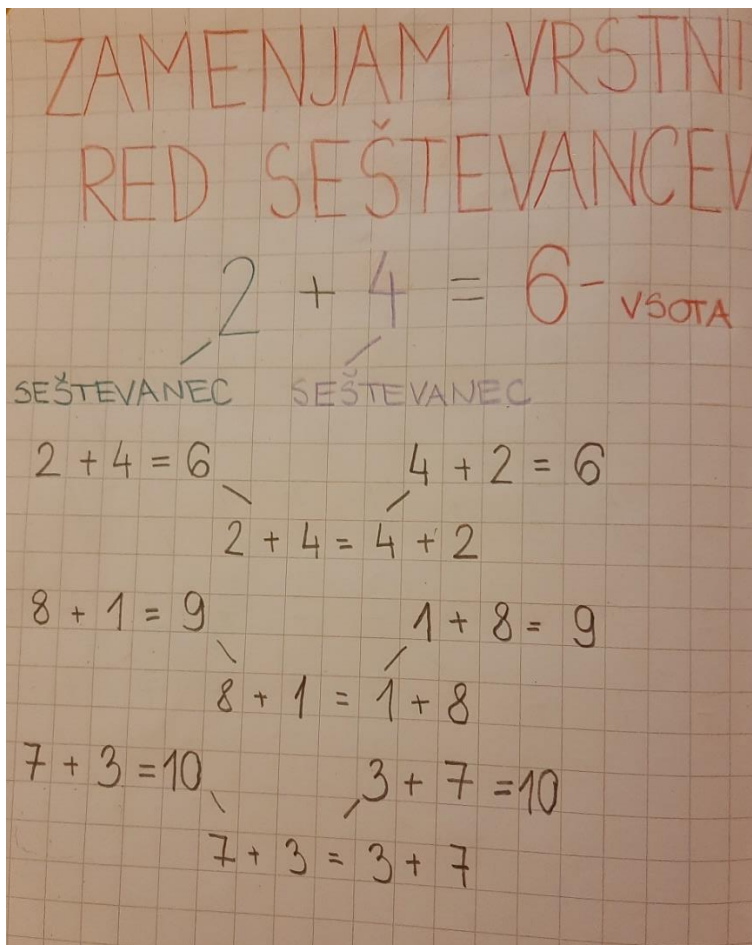 ZAMENJAM VRSTNI
RED SEŠTEVANCEV
2 + 4 = 6 - VSOTA
SEŠTEVANEC SEŠTEVANEC
2 + 4 = 6 4 + 2 = 6
2 + 4 = 4 + 2
8 + 1 = 9 1 + 8 = 9
8 + 1 = 1 + 8
7 + 3 = 10 3 + 7 = 10
7 + 3 = 3 + 7